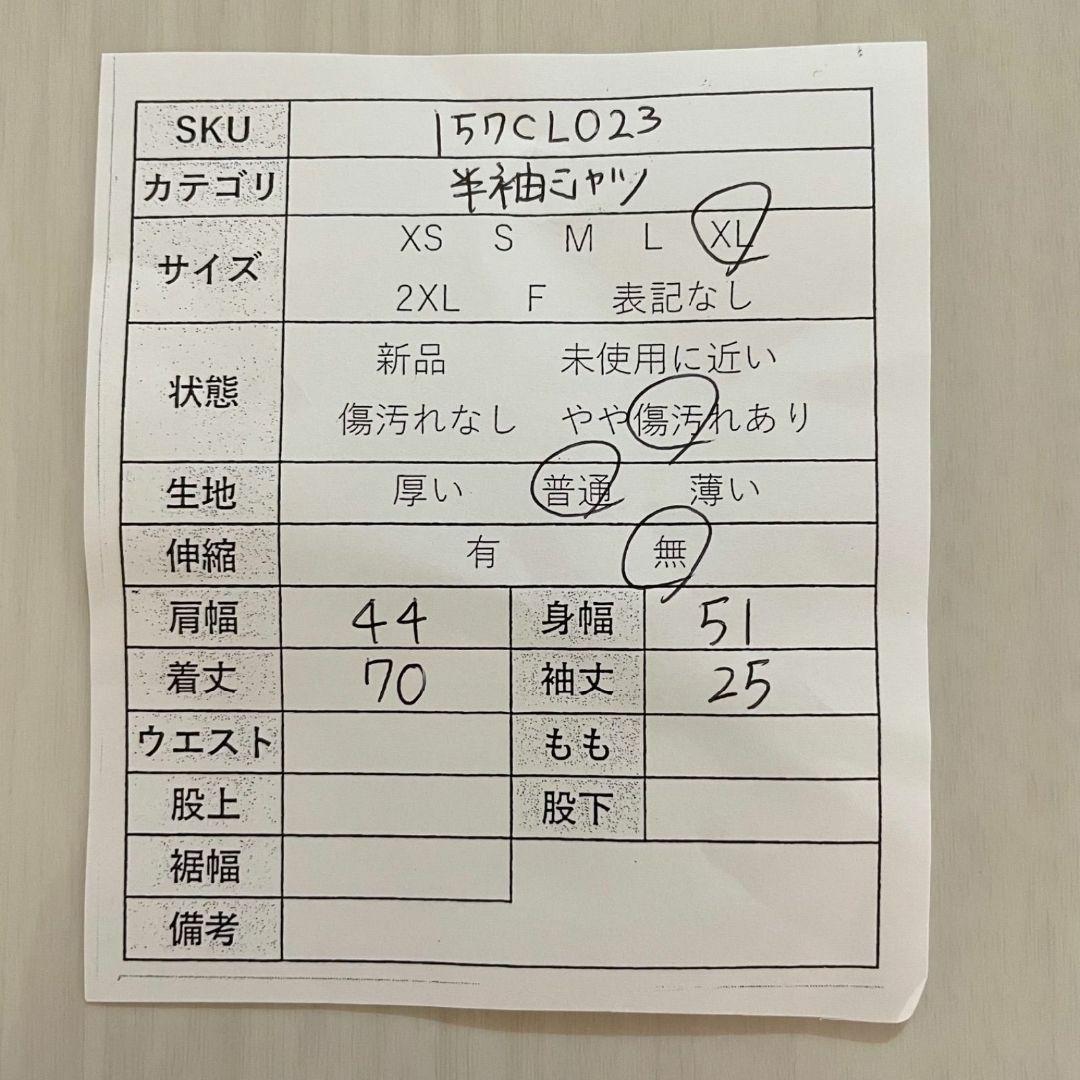 SKU 157CL023
カテゴリ 半袖シャツ
サイズ XS S M L XL
2XL F 表記なし
状態 新品 未使用に近い
傷汚れなし やや傷汚れあり
生地 厚い 普通 薄い
伸縮 有 無
肩幅 44 身幅 51
着丈 70 袖丈 25
ウエスト もも
股上 股下
裾幅
備考